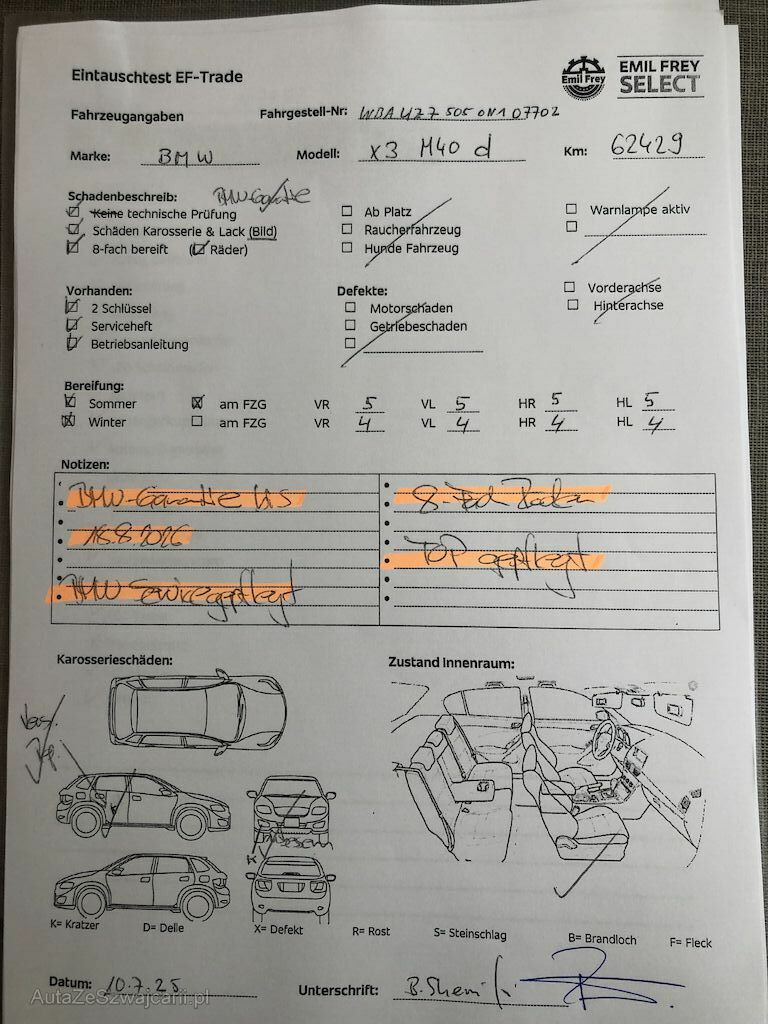 Eintauschtest EF-Trade
Emil Frey
EMIL FREY
SELECT
Fahrzeugangaben Fahrgestell-Nr:
Marke: BMW Modell: X3 M40 d Km: 62429
Schadenbeschreib: BMW-Garantie
Keine technische Prüfung Ab Platz Warnlampe aktiv
Schäden Karosserie & Lack (Bild) Raucherfahrzeug
8-fach bereift ( Räder) Hunde Fahrzeug
Vorhanden: Defekte: Vorderachse
2 Schlüssel Motorschaden Hinterachse
Serviceheft Getriebeschaden
Betriebsanleitung
Bereifung:
Sommer am FZG VR 5 VL 5 HR 5 HL 5
Winter am FZG VR 4 VL 4 HR 4 HL 4
Notizen:
BMW-Garantie bis 8-Fach
2026 TOP gepflegt
BMW Servicegepflegt
Karosserieschäden: Zustand Innenraum:
K
K
K= Kratzer D= Delle X= Defekt R= Rost S= Steinschlag B= Brandloch F= Fleck
Datum: 10.7.25 Unterschrift:
AutaZeSzwajcarii.pl